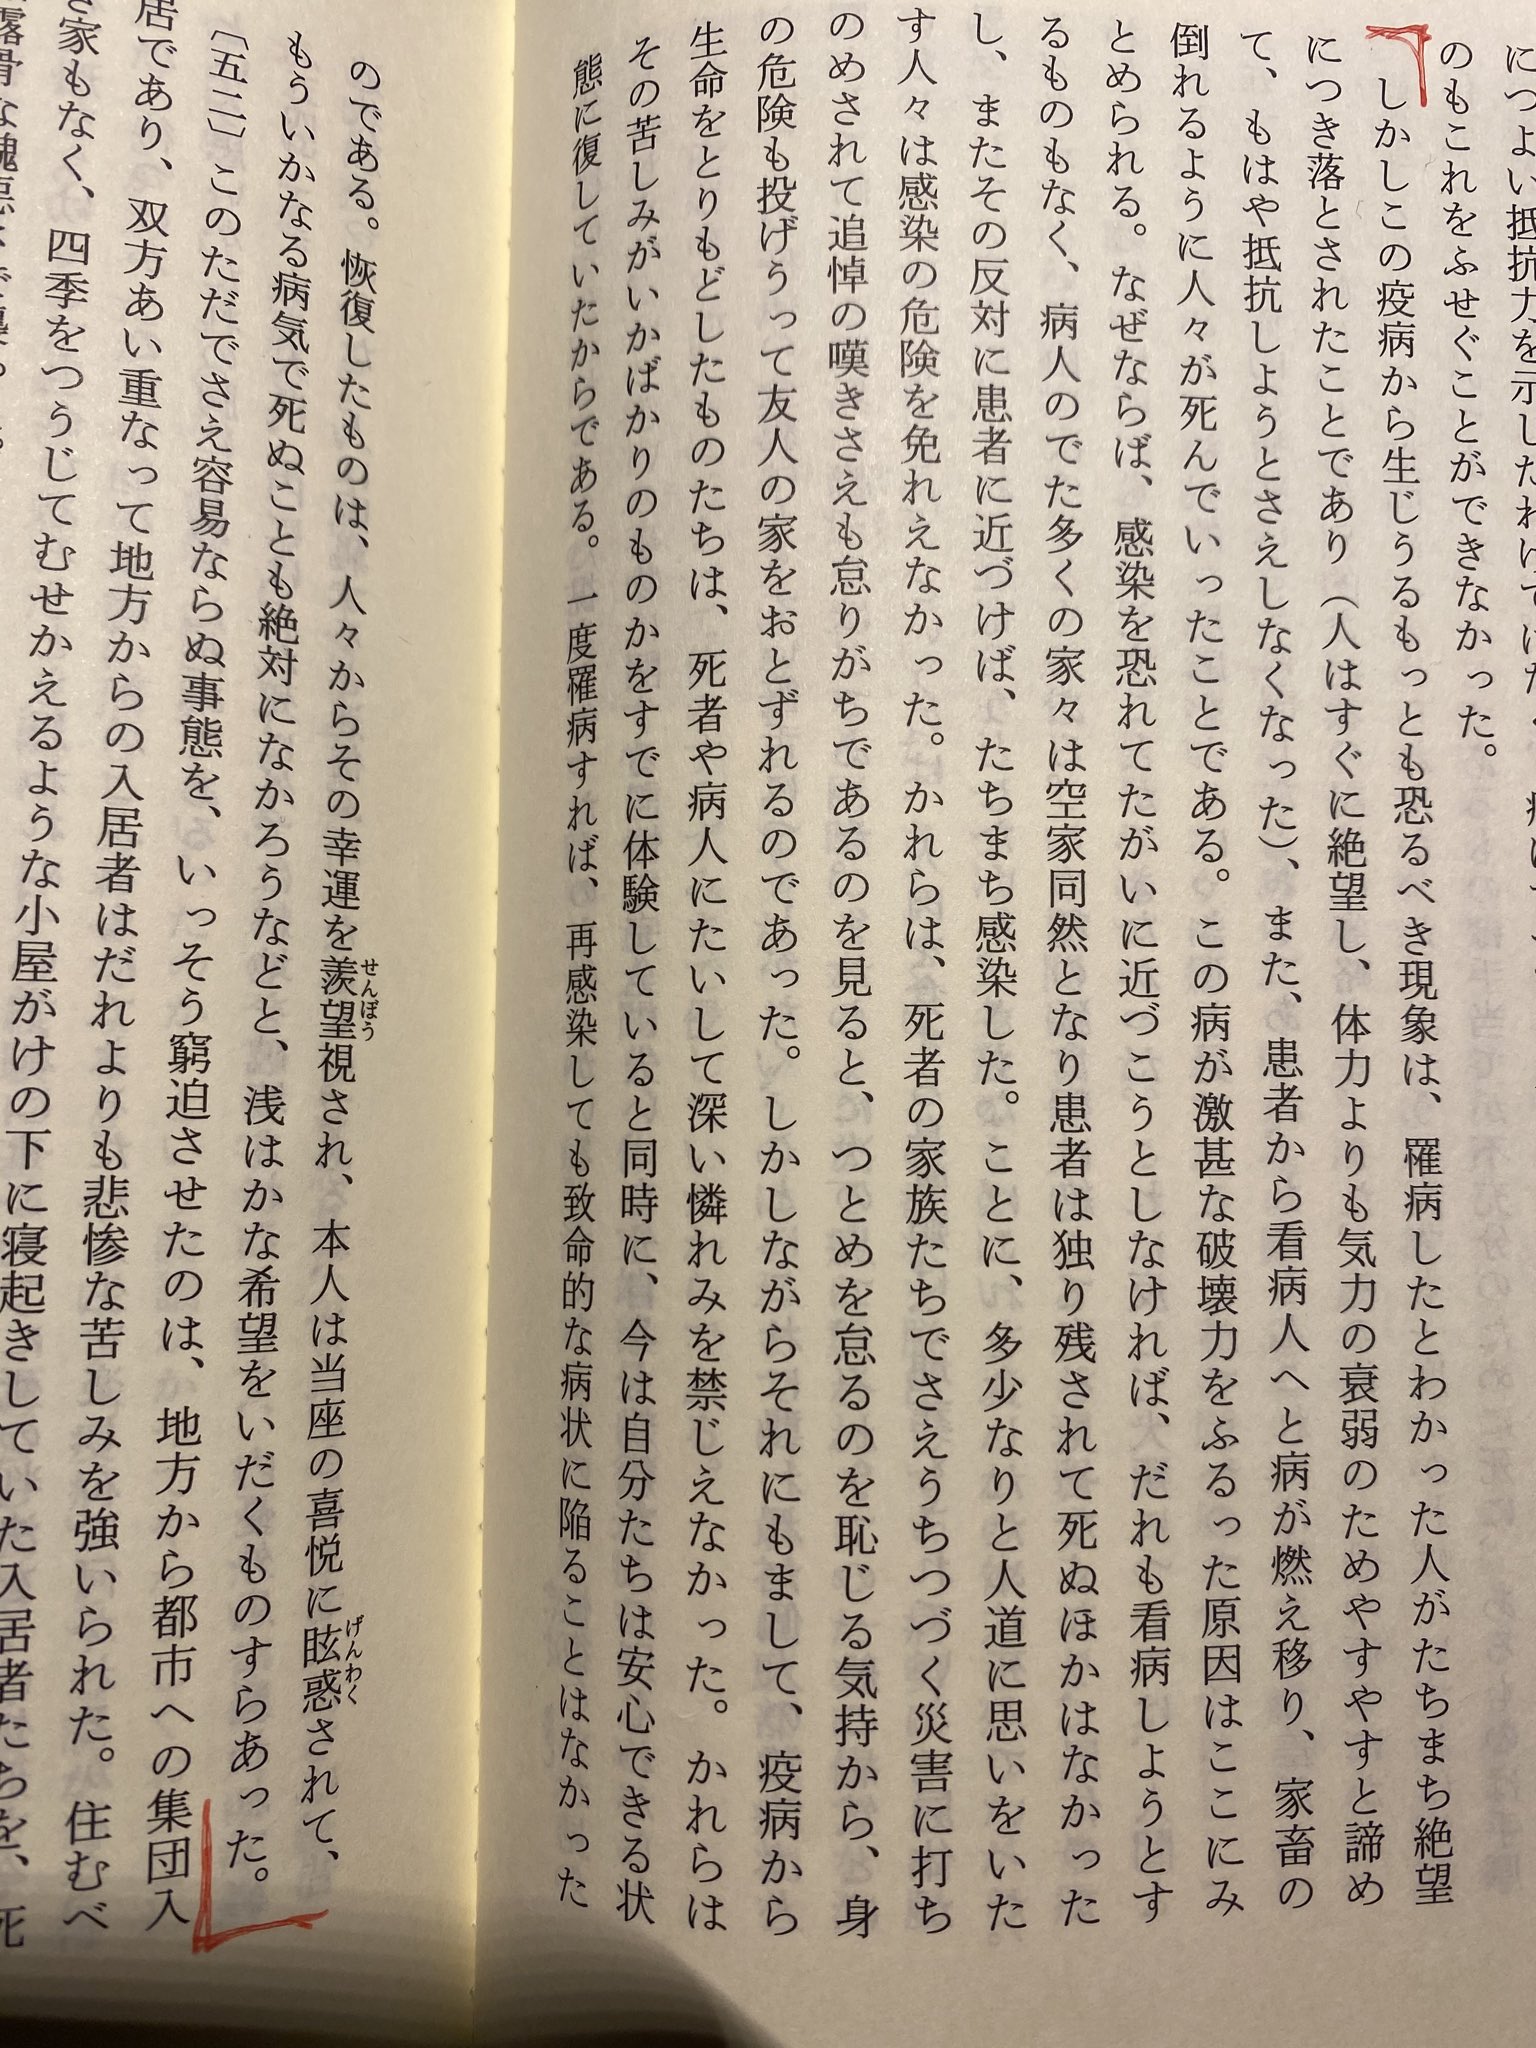 のもこれをふせぐことができなかった。
しかしこの疫病から生じうるもっとも恐るべき現象は、罹病したとわかった人がたちまち絶望
につき落とされたことであり（人はすぐに絶望し、体力よりも気力の衰弱のためやすやすと諦め
て、もはや抵抗しようとさえしなくなった）、また、患者から看病人へと病が燃え移り、家畜の
倒れるように人々が死んでいったことである。この病が激甚な破壊力をふるった原因はここにみ
とめられる。なぜならば、感染を恐れてたがいに近づこうとしなければ、だれも看病しようとす
るものもなく、病人のでた多くの家々は空家同然となり患者は独り残されて死ぬほかはなかった
し、またその反対に患者に近づけば、たちまち感染した。ことに、多少なりと人道に思いをいた
す人々は感染の危険を免れえなかった。かれらは、死者の家族たちでさえうちつづく災害に打ち
のめされて追悼の嘆きさえも怠りがちであるのを見ると、つとめを怠るのを恥じる気持から、身
の危険も投げうって友人の家をおとずれるのであった。しかしながらそれにもまして、疫病から
生命をとりもどしたものたちは、死者や病人にたいして深い憐れみを禁じえなかった。かれらは
その苦しみがいかばかりのものかをすでに体験していると同時に、今は自分たちは安心できる状
態に復していたからである。一度罹病すれば、再感染しても致命的な病状に陥ることはなかった
のである。恢復したものは、人々からその幸運を羨望視され、本人は当座の喜悦に眩惑されて、
せんぼう
げんわく
もういかなる病気で死ぬことも絶対になかろうなどと、浅はかな希望をいだくものすらあった。
〔五二〕このただでさえ容易ならぬ事態を、いっそう窮迫させたのは、地方から都市への集団入
居であり、双方あい重なって地方からの入居者はだれよりも悲惨な苦しみを強いられた。住むべ
き家もなく、四季をつうじてむせかえるような小屋がけの下に寝起きしていた入居者たちを、死